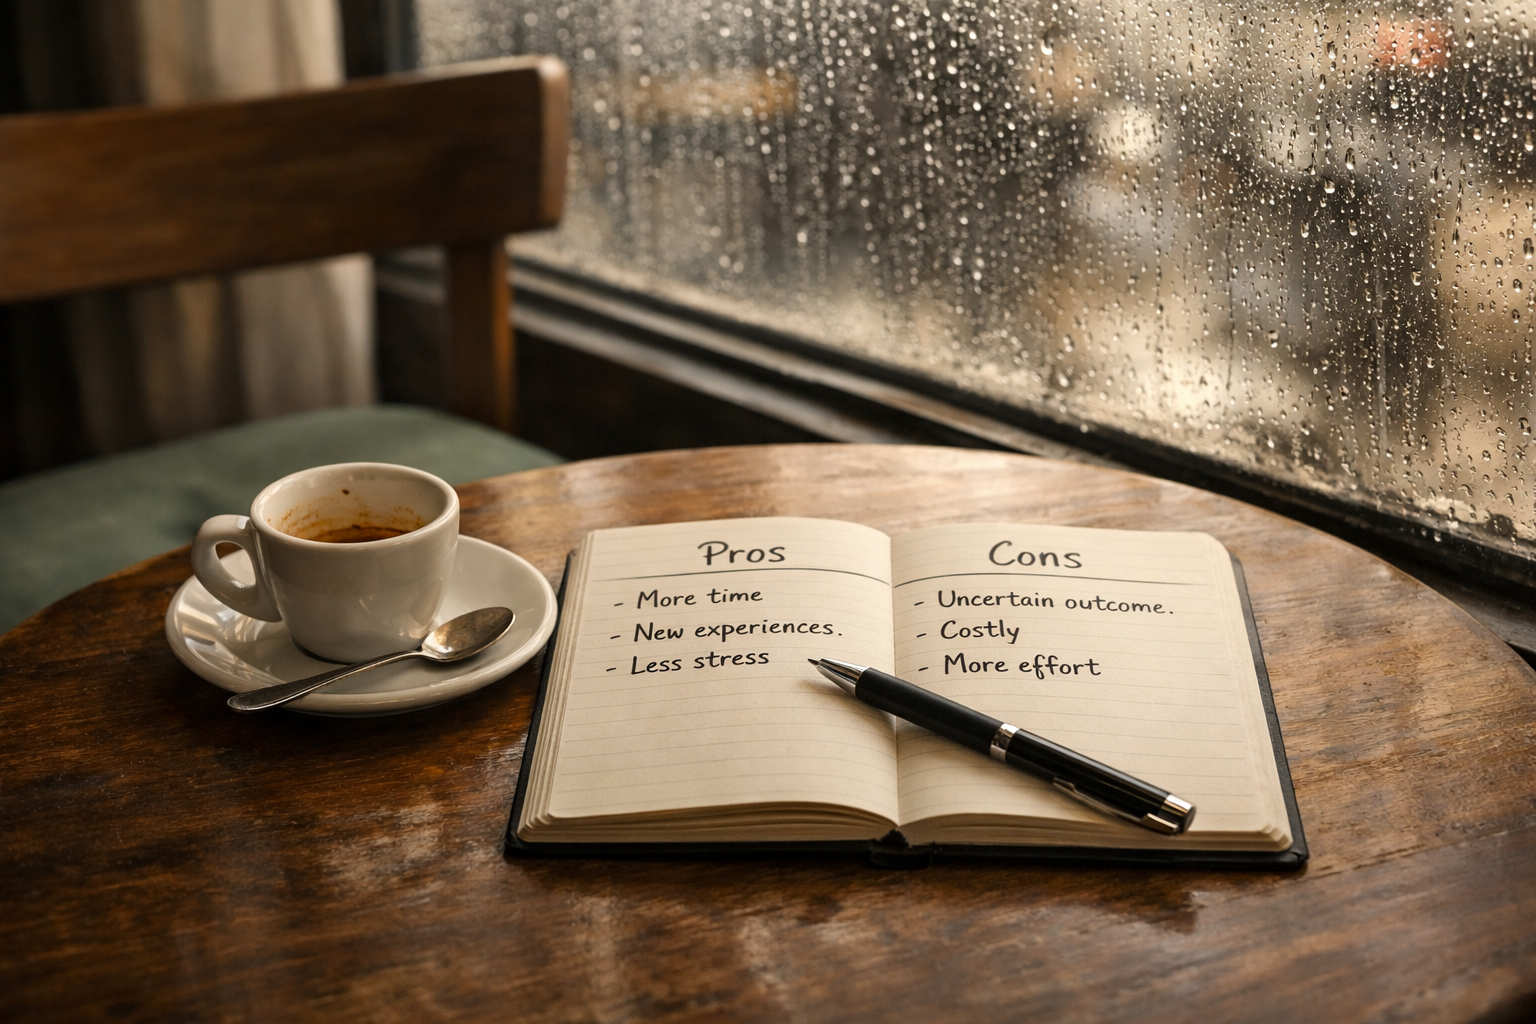 Pros
- More time
- New experiences.
- Less stress
Cons
- Uncertain outcome.
- Costly
- More effort